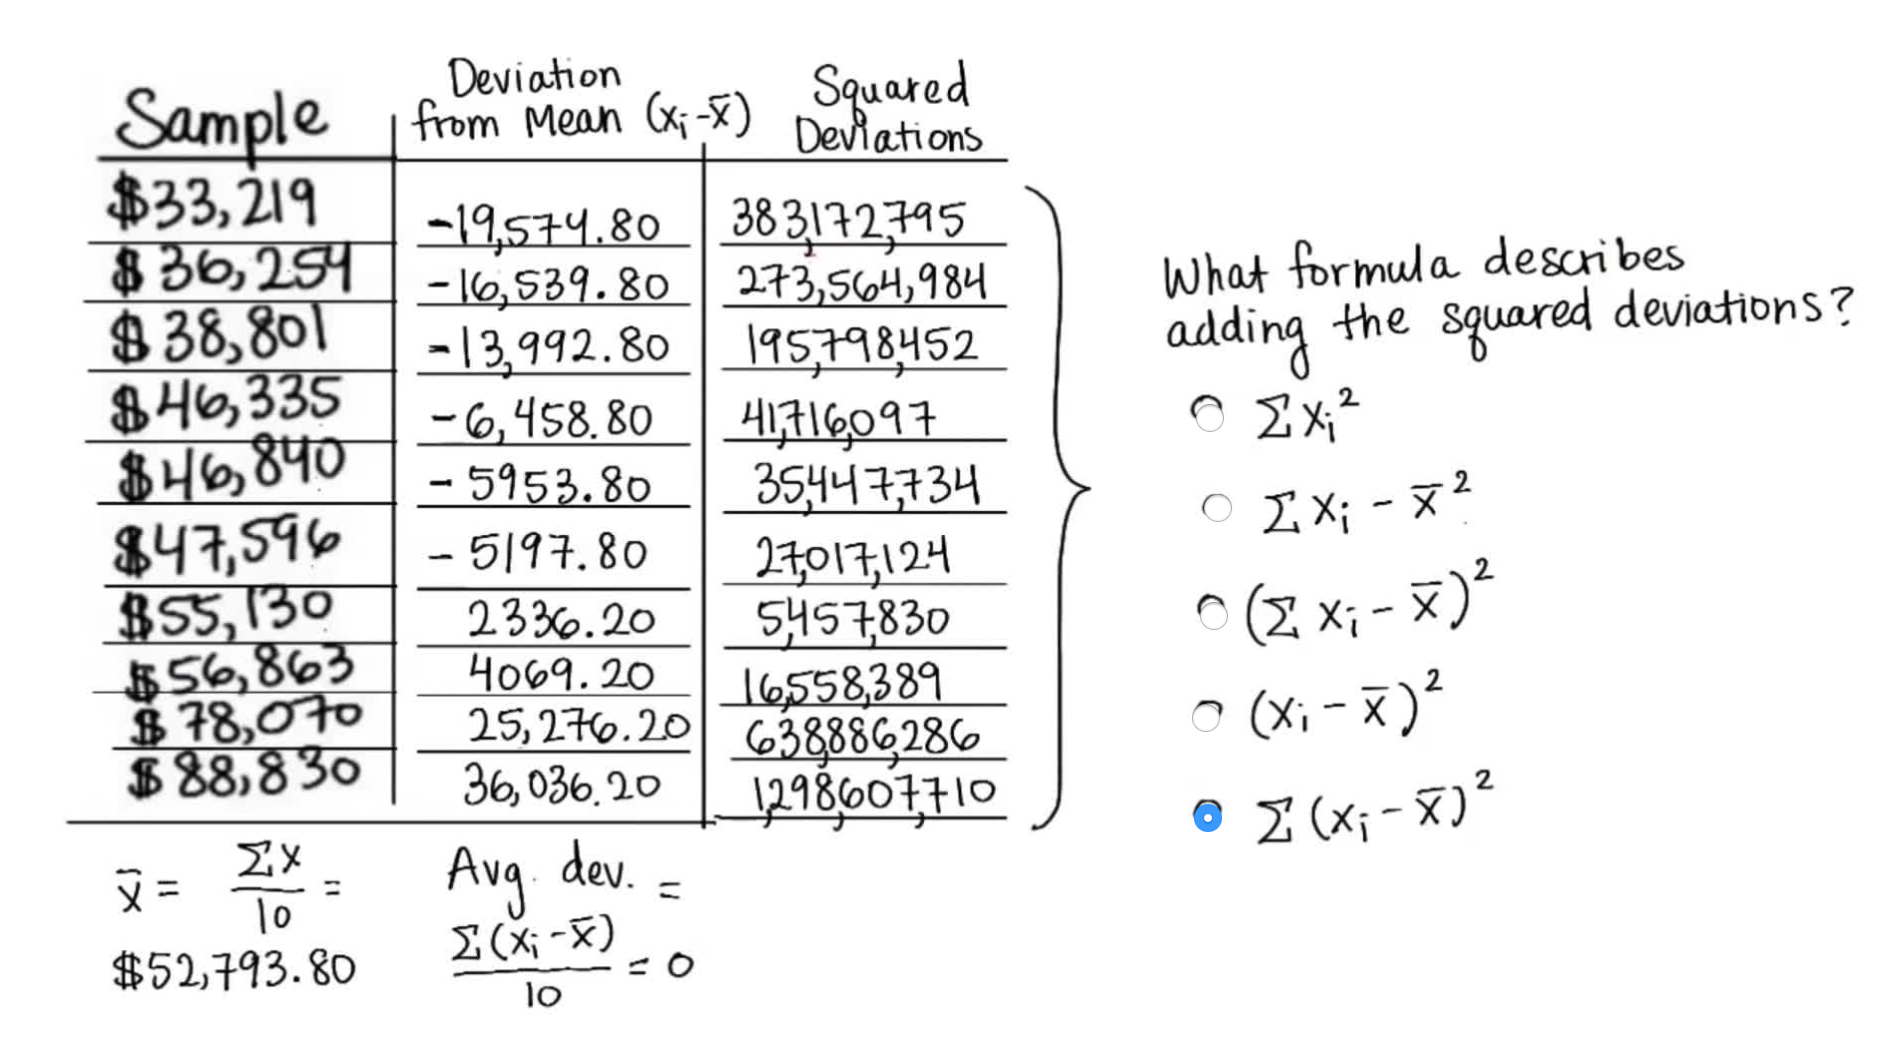 Sample
Deviation
from Mean (xᵢ-x̄)
Squared
Deviations
$33,219 -19,574.80 383,172,795
$36,254 -16,539.80 273,564,984
$38,801 -13,992.80 195,798,452
$46,335 -6,458.80 41,716,097
$46,840 -5953.80 35,447,734
$47,596 -5197.80 27,017,124
$55,130 2336.20 5,457,830
$56,863 4069.20 16,558,389
$78,070 25,276.20 638,886,286
$88,830 36,036.20 1,298,607,710
x̄ = Σx/10 =
$52,793.80
Avg. dev. =
Σ(xᵢ-x̄)/10 = 0
What formula describes
adding the squared deviations?
Σxᵢ²
Σxᵢ - x̄²
(Σxᵢ - x̄)²
(xᵢ - x̄)²
Σ(xᵢ - x̄)²